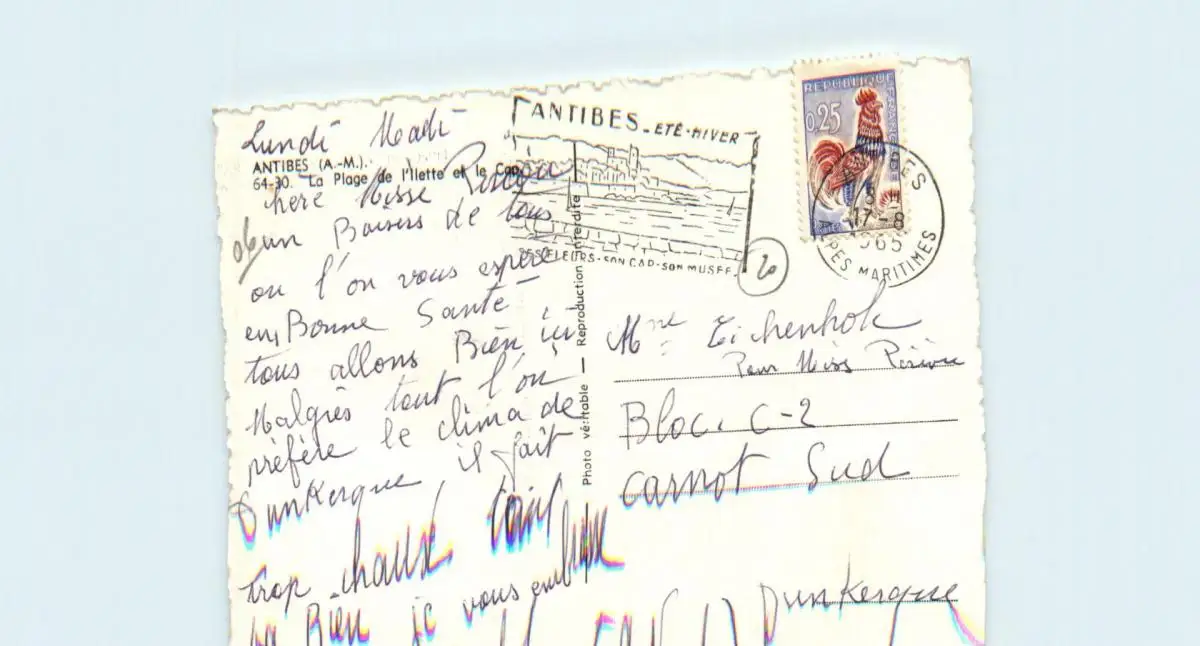 Lundi Madi
ANTIBES (A.-M.).
64-30. La Plage de l'Ilette et le Cap
chère Misse
un Baisers de tous
ou l'on vous espère
en Bonne Santé
tous allons Bien ici
Malgrès tout l'on
préfère le clima de
Dunkerque, il fait
trop chaud tout
va Bien je vous
Photo véritable — Reproduction interdite
ANTIBES - ETÉ-HIVER
SES FLEURS-SON CAP-SON MUSÉE
20
REPUBLIQUE FRANÇAISE
0,25
17-8
1965
ALPES MARITIMES
Mme Eichenhok
Pour Miss
Bloc. C-2
Carnot Sud
Dunkerque